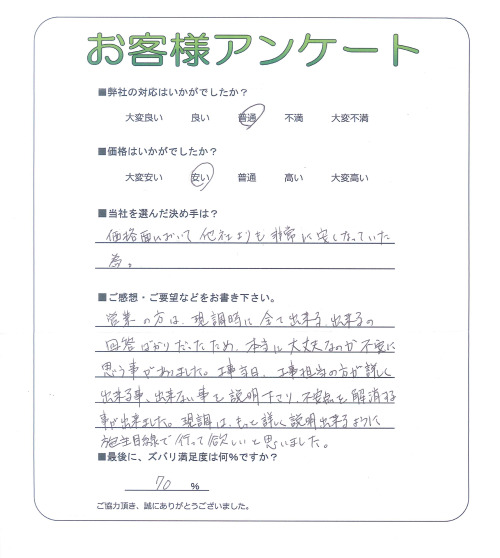 お客様アンケート
■弊社の対応はいかがでしたか？
大変良い 良い 普通 不満 大変不満
■価格はいかがでしたか？
大変安い 安い 普通 高い 大変高い
■当社を選んだ決め手は？
価格面において 他社よりも 非常に安くなっていた
為。
■ご感想・ご要望などをお書き下さい。
営業の方は、現調時に 全て出来る、出来るの
回答ばかりだったため、本当に大丈夫なのか不安に
思う事がありました。工事当日、工事担当の方が詳しく
出来る事、出来ない事を説明下さり、不安点を解消する
事が出来ました。現調は、もっと詳しく説明出来るように
施主目線で行って欲しいと思いました。
■最後に、ズバリ満足度は何%ですか？
70 %
ご協力頂き、誠にありがとうございました。